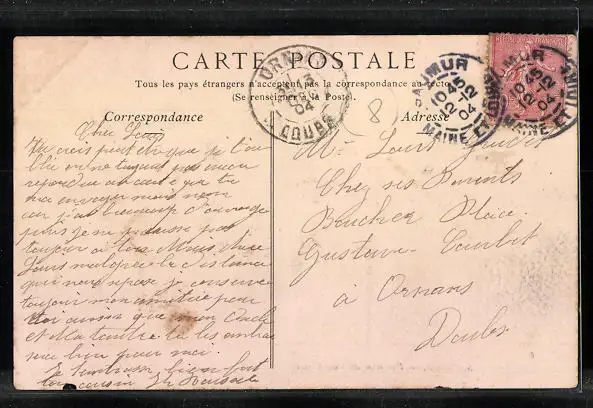 CARTE POSTALE
Tous les pays étrangers n'acceptent pas la correspondance au recto
(Se renseigner à la Poste).
Correspondance
Adresse
ORNANS
DOUBS
04
8
SAUMUR
10 45
12 04
MAINE ET LOIRE
Cher Louis
Tu crois peut être que je t'ou
blie en ne pas encor
repondu au carte que tu
m'a envoyer mais non
car j'ai beaucoup d'ouvrage
puis je ne pas
toujour à toi cher
Louis malgré la distance
qui nous separe je conserve
toujour mon amitiée pour
toi ainsi que mon Oncle
et Ma tante tu les embras
sera bien pour moi.
Je t'embrasse bien fort
ton cousin
Mr Louis
Chez ses Parents
Boucher Place
Gustave Courbet
à Ornans
Doubs